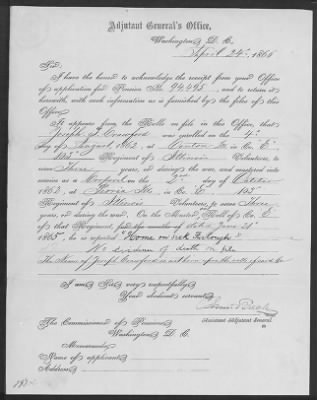 Adjutant General's Office,
Washington, D. C.
April 24th, 1865
Sir:
I have the honor to acknowledge the receipt from your Office
of application for Pension No. 94495, and to return it
herewith, with such information as is furnished by the files of this
Office.
It appears from the Rolls on file in this Office, that
Joseph S. Crawford was enrolled on the 4th
day of August, 1862, at Canton in Co. E
103d Regiment of Illinois Volunteers, to
serve Three years, or during the war, and mustered into
service as a Corporal on the 2nd day of October
1862, at Peoria Ills, in Co. E 103d
Regiment of Illinois Volunteers, to serve Three
years, or during the war. On the Muster Roll of Co. E
of that Regiment, for the months of to June 21st
1865, he is reported "Home on Sick Furlough"
No evidence of death on file
The Name of Joseph Crawford
I am, Sir, very respectfully,
Your obedient servant,
Assistant Adjutant General.
The Commissioner of Pensions,
Washington, D. C.
Memoranda:
Name of applicant
Address